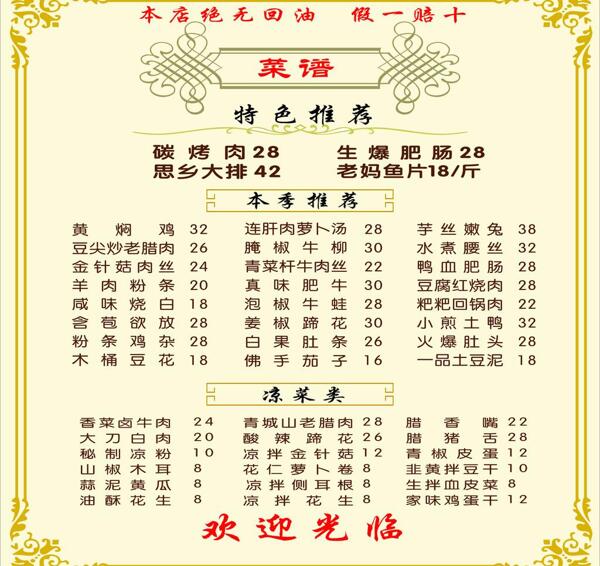 本店绝无回油 假一赔十
菜谱
特色推荐
碳烤肉28 生爆肥肠28
思乡大排42 老妈鱼片18/斤
本季推荐
黄焖鸡 32 连肝肉萝卜汤 28 芋丝嫩兔 38
豆尖炒老腊肉 26 腌椒牛柳 30 水煮腰丝 32
金针菇肉丝 24 青菜杆牛肉丝 22 鸭血肥肠 28
羊肉粉条 20 真味肥牛 30 豆腐红烧肉 28
咸味烧白 18 泡椒牛蛙 28 粑粑回锅肉 22
含苞欲放 28 姜椒蹄花 30 小煎土鸭 32
粉条鸡杂 28 白果肚条 30 火爆肚头 28
木桶豆花 18 佛手茄子 16 一品土豆泥 18
凉菜类
香菜卤牛肉 24 青城山老腊肉 28 腊香嘴 22
大刀白肉 20 酸辣蹄花 26 腊猪舌 28
秘制凉粉 10 凉拌金针菇 12 青椒皮蛋 12
山椒木耳 8 花仁萝卜卷 8 韭黄拌豆干 10
蒜泥黄瓜 8 凉拌侧耳根 8 生拌血皮菜 8
油酥花生 8 凉拌花生 8 家味鸡蛋干 12
欢迎光临